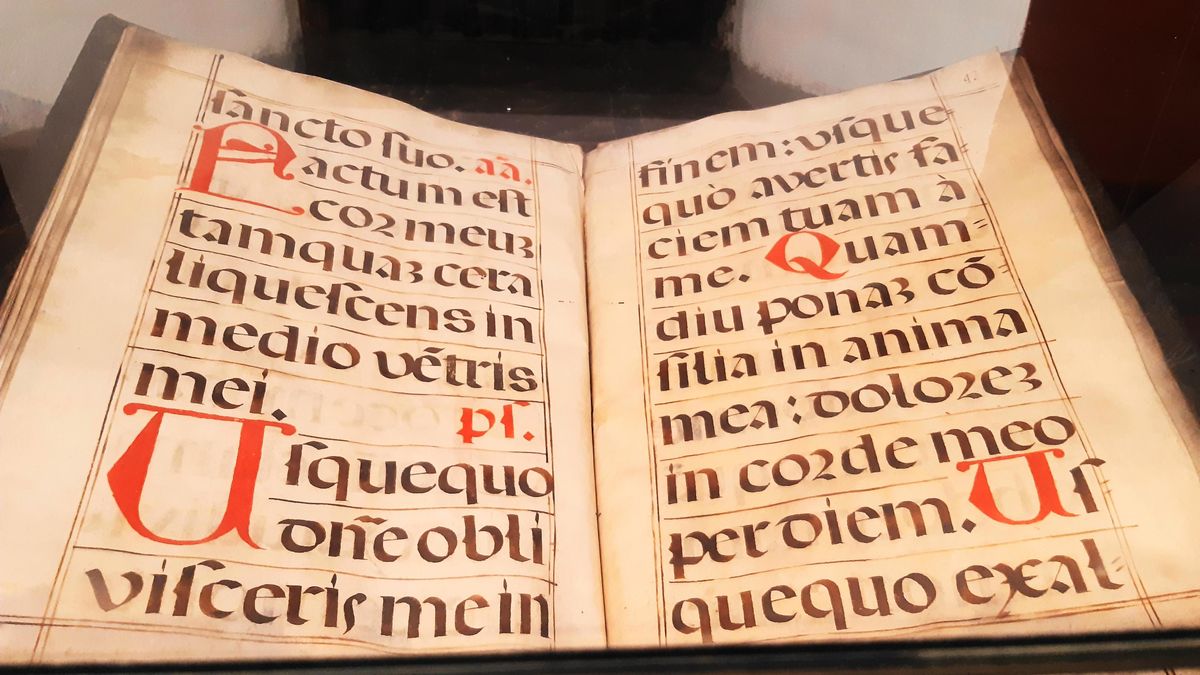 sancto suo. añ.
Factum est
cor meuz
tamquaz cera
liquescens in
medio vẽtris
mei.
ps.
Usquequo
dñe obli
visceris me in
42
finem: usque-
quò avertis fa-
ciem tuam à
me. Quam-
diu ponaz cõ-
silia in anima
mea: dolorez
in corde meo
per diem. Us
quequo exal-